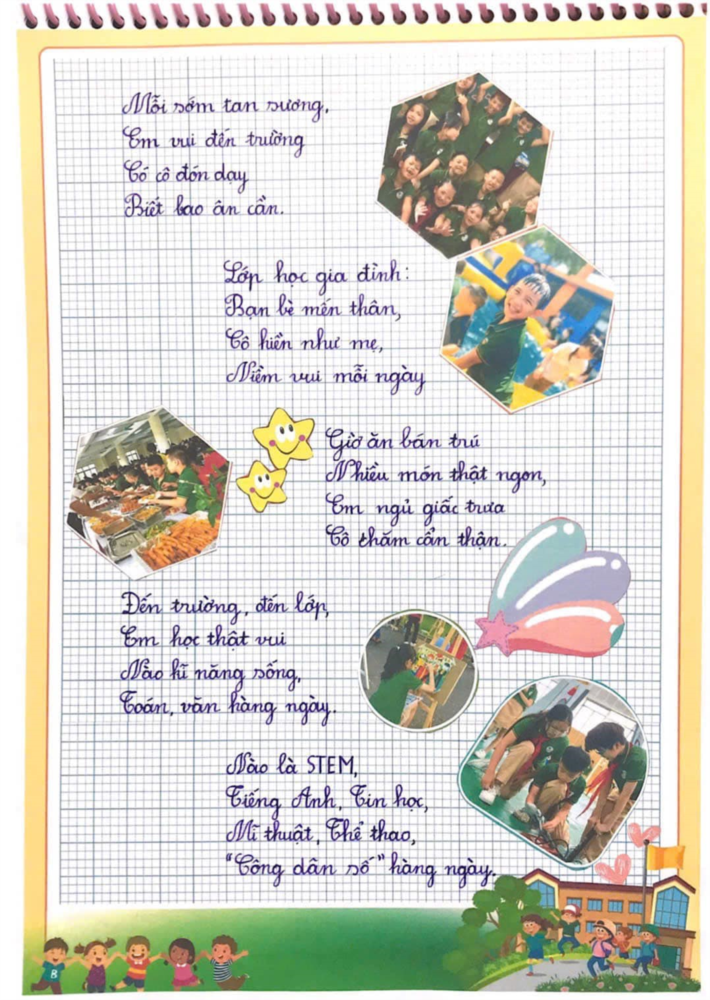 Mỗi sớm tan sương,
Em vui đến trường
Có cô đón dạy
Biết bao ân cần.
Lớp học gia đình:
Bạn bè mến thân,
Cô hiền như mẹ,
Niềm vui mỗi ngày
Giờ ăn bán trú
Nhiều món thật ngon,
Em ngủ giấc trưa
Cô chăm cẩn thận.
Đến trường, đến lớp,
Em học thật vui
Nào kĩ năng sống,
Toán, văn hàng ngày.
Nào là STEM,
Tiếng Anh, Tin học,
Mĩ thuật, Thể thao,
"Công dân số" hàng ngày.